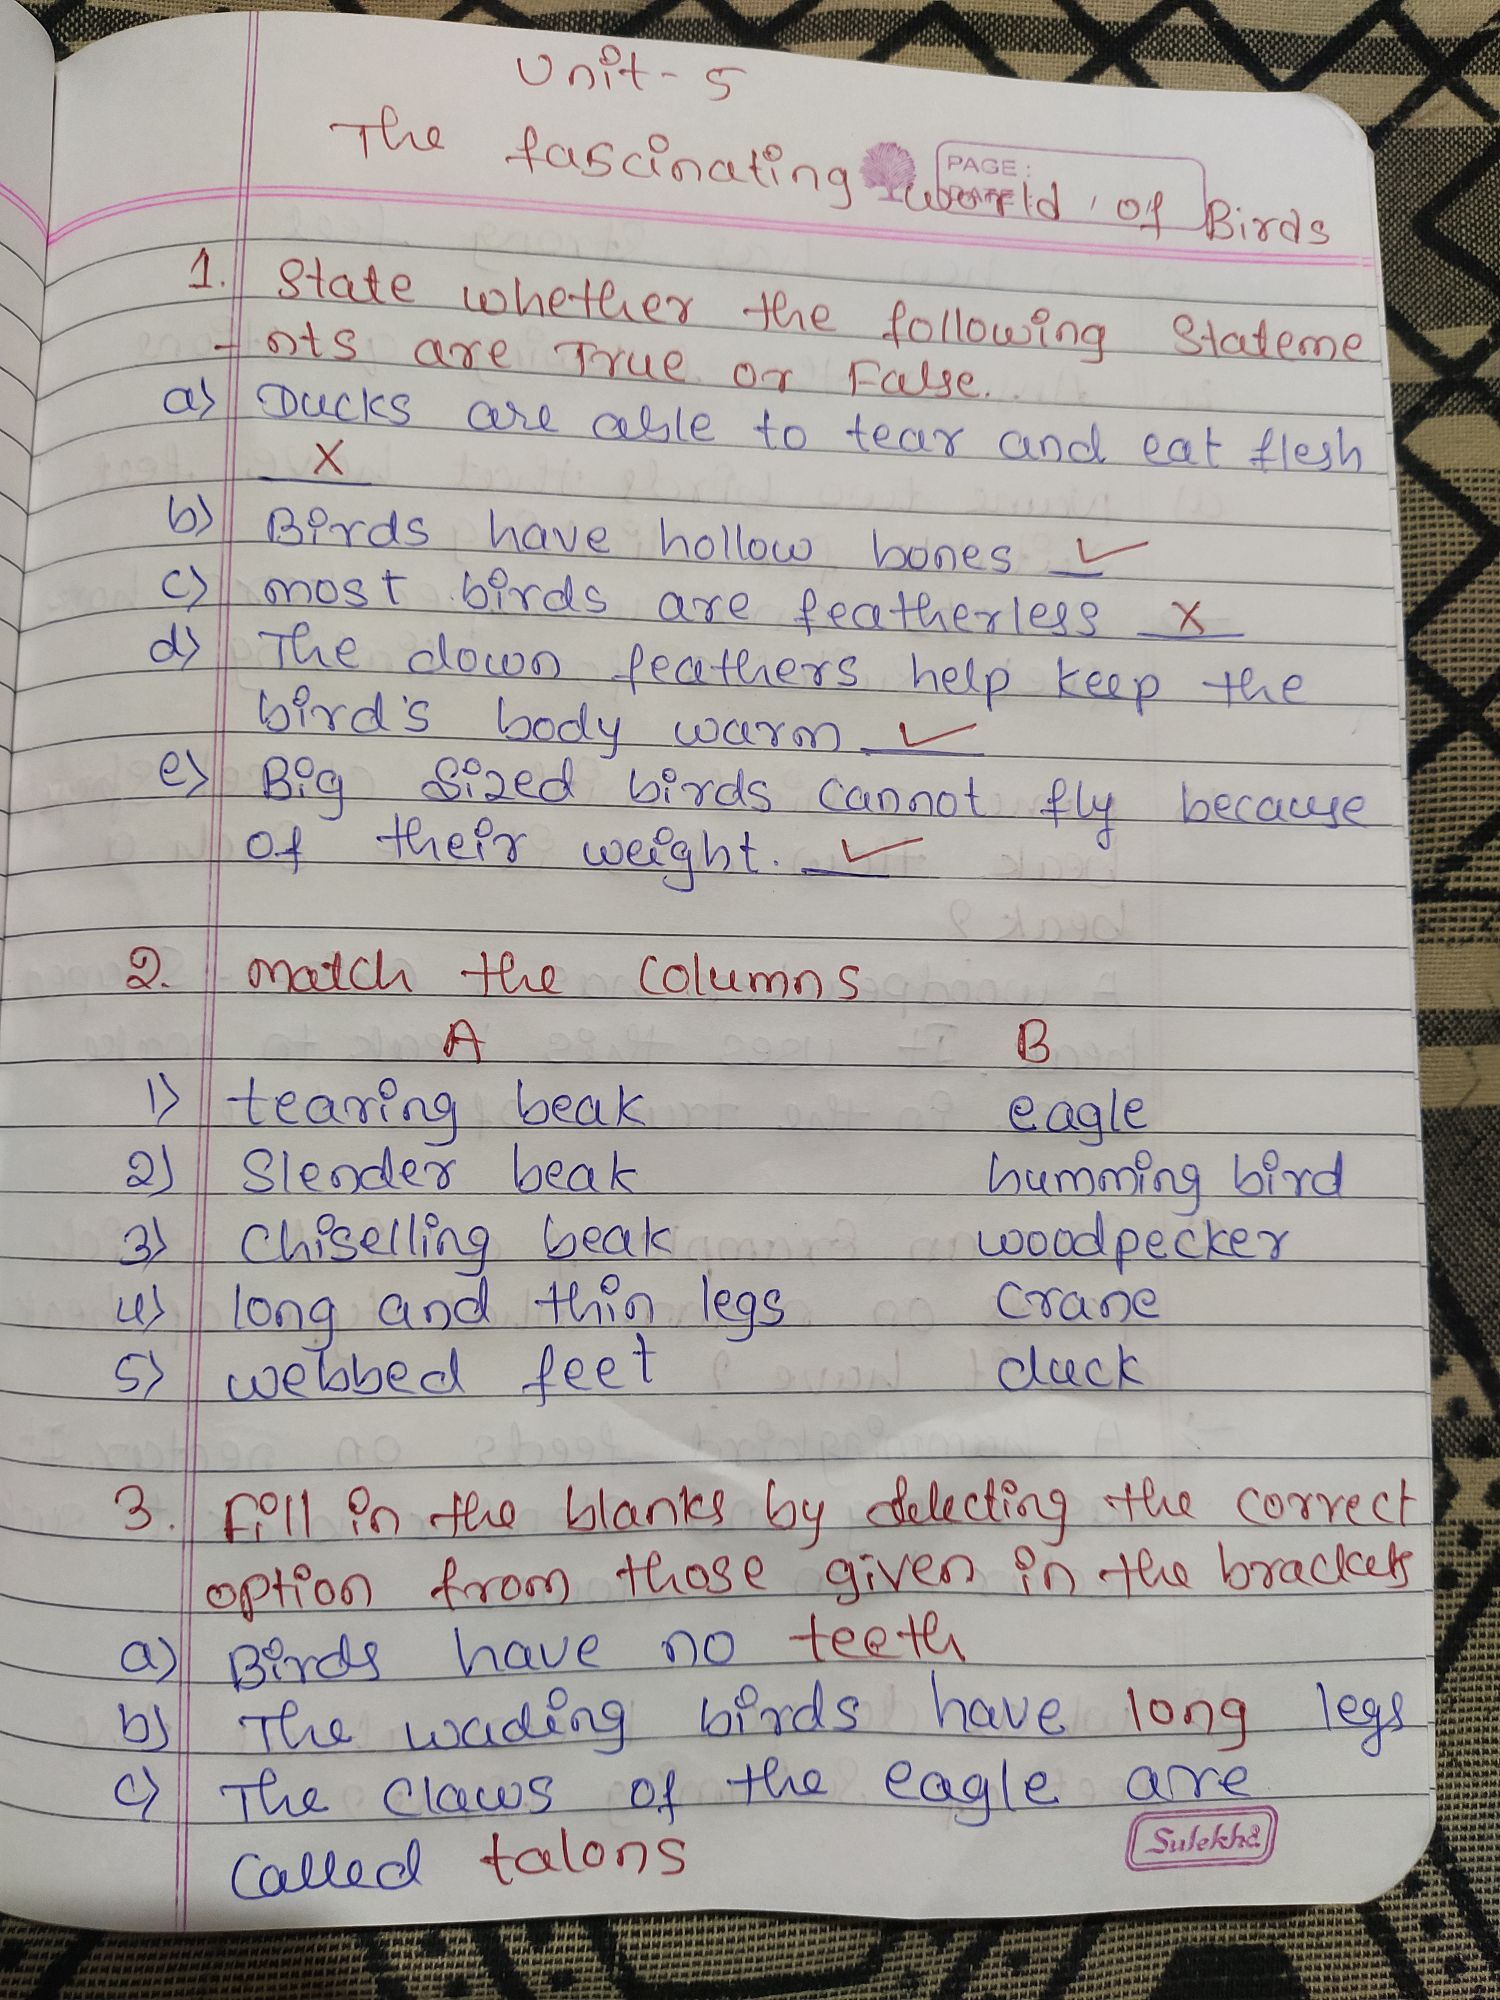 Unit - 5
The fascinating world of Birds
PAGE:
1. State whether the following Stateme
- nts are True or False.
a) Ducks are able to tear and eat flesh
X
b) Birds have hollow bones ✓
c) most birds are featherless X
d) The down feathers help keep the
bird's body warm ✓
e) Big sized birds cannot fly because
of their weight. ✓
2. match the columns
A B
1) tearing beak eagle
2) Slender beak humming bird
3) Chiselling beak woodpecker
4) long and thin legs crane
5) webbed feet duck
3. Fill in the blanks by selecting the correct
option from those given in the brackets
a) Birds have no teeth
b) The wading birds have long legs
c) The claws of the eagle are
called talons
Sulekha